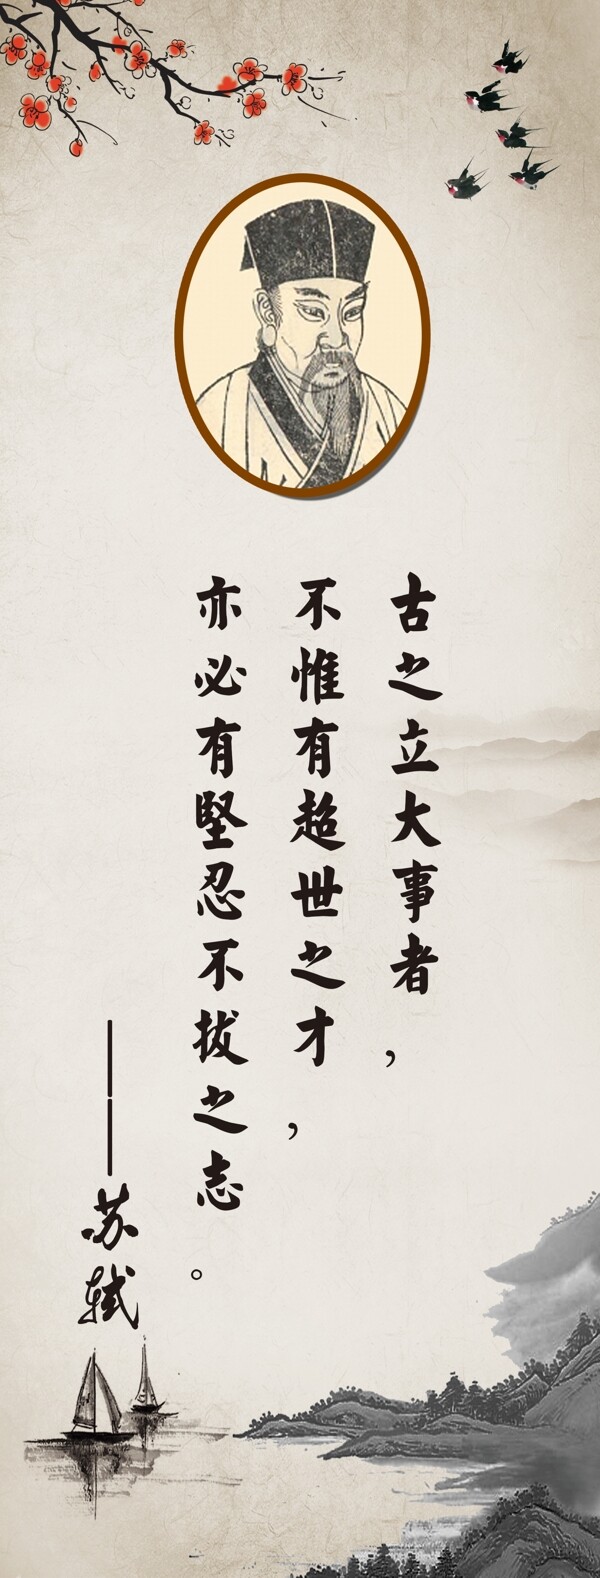 古之立大事者，
不惟有超世之才，
亦必有堅忍不拔之志。
——苏轼